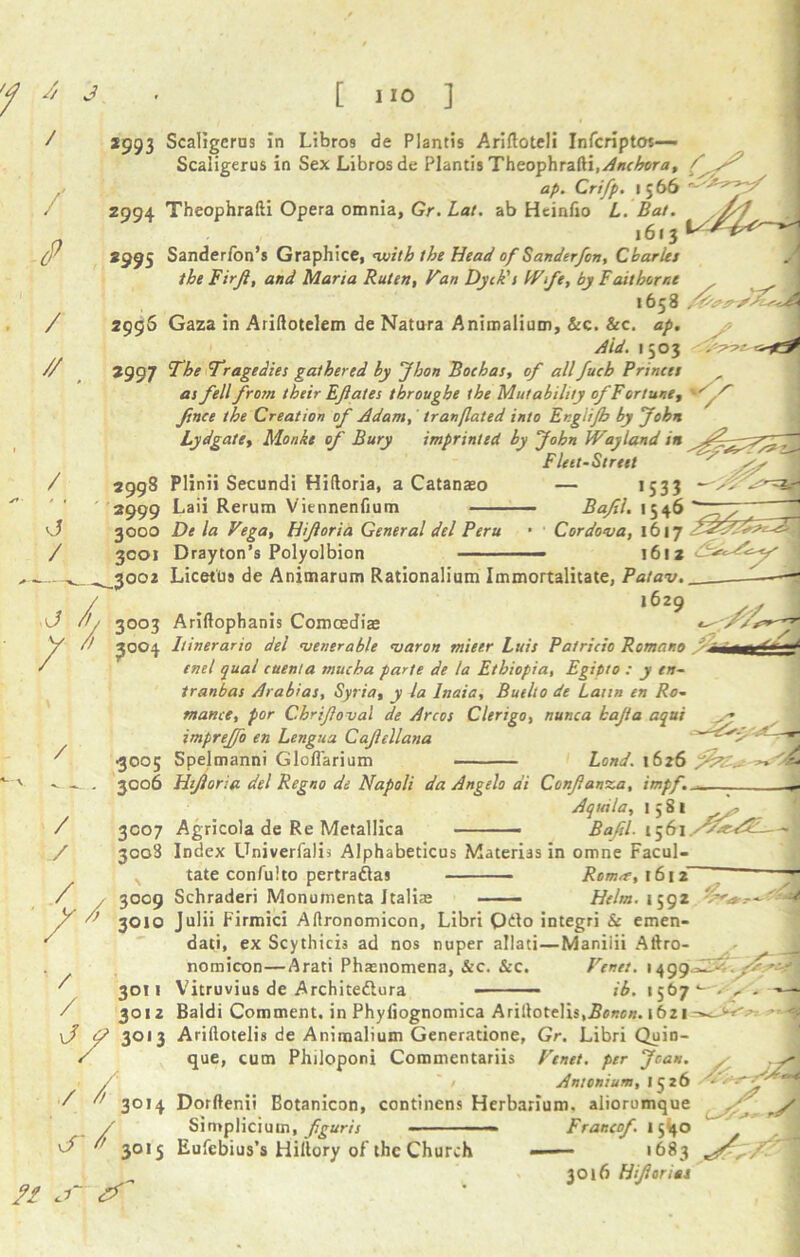 [ 110 ]
2993 Scaligerus in Libros de Plantis Ariſtoteli Inſcriptos—
Scaligerus in Sex Libros de Plantis Theophraſti, Anchora,
ap. Criſp. 1566
2994 Theophraſti Opera omnia, Gr. Lat. ab Heinſio L. Bat.
1613
2995 Sanderſon's Graphice, with the Head of Sanderſon, Charles
the Firſt, and Maria Ruten, Van Dyck's Wife, by Faithorne
1658
2996 Gaza in Ariſtotelem de Natura Animalium, &c. &c. ap.
Ald. 1503
2997 The Tragedies gathered by Jhon Bochas, of all ſuch Princes
as fell from their Eſtates throughe the Mutability of Fortune,
ſince the Creation of Adam, tranſlated into Engliſh by John
Lydgate, Monke of Bury imprinted by John Wayland in
Fleet-Street
2998 Plinii Secundi Hiſtoria, a Catanæo — 1533
2999 Laii Rerum Viennenſium —— Baſil. 1546
3000 De la Vega, Hiſtoria General del Peru · Cordova, 1617
3001 Drayton's Polyolbion —— 1612
3002 Licetus de Animarum Rationalium Immortalitate, Patav.
1629
3003 Ariſtophanis Comœdiæ
3004 Itinerario del venerable varon mieer Luis Patricio Romano
enel qual cuenta mucha parte de la Ethiopia, Egipto : y en-
tranbas Arabias, Syria, y la Inaia, Buelto de Latin en Ro-
mance, por Chriſtoval de Arcos Clerigo, nunca haſta aqui
impreſſo en Lengua Caſtellana
3005 Spelmanni Gloſſarium —— Lond. 1626
3006 Hiſtoria del Regno di Napoli da Angelo di Conſtanza, impſ.
Aquila, 1581
3007 Agricola de Re Metallica —— Baſil. 1561
3008 Index Univerſalis Alphabeticus Materias in omne Facul-
tate conſulto pertractas —— Romæ, 1612
3009 Schraderi Monumenta Italiæ —— Helm. 1592
3010 Julii Firmici Aſtronomicon, Libri Octo integri & emen-
dati, ex Scythicis ad nos nuper allati—Manilii Aſtro-
nomicon—Arati Phænomena, &c. &c. Venet. 1499
3011 Vitruvius de Architectura —— ib. 1567
3012 Baldi Comment. in Phyſiognomica Ariſtotelis, Bonon. 1621
3013 Ariſtotelis de Animalium Generatione, Gr. Libri Quin-
que, cum Philoponi Commentariis Venet. per Joan.
Antonium, 1526
3014 Dorſtenii Botanicon, continens Herbarium, aliorumque
Simplicium, figuris —— Francof. 1540
3015 Euſebius's Hiſtory of the Church —— 1683
3016 Hiſtorias